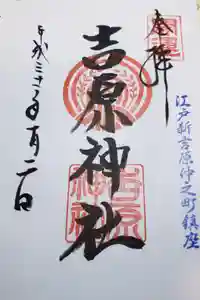 奉拝
開運
江戸新吉原仲之町鎮座
吉原神社
吉原神社
平成三十年一月二日